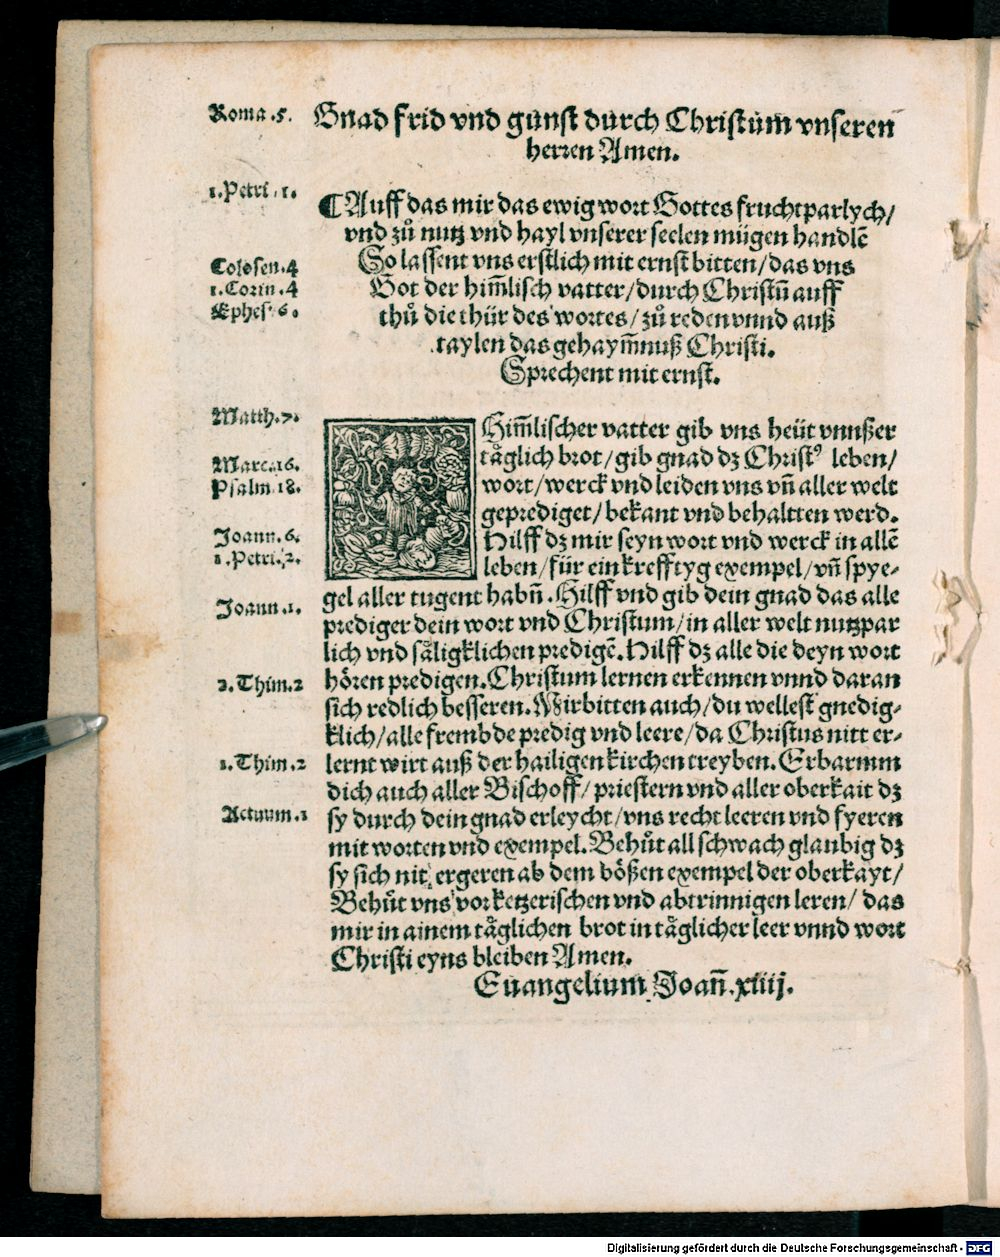 Roma .5.
Gnad frid vnd gunst durch Christum vnseren
herren Amen.
1. Petri. 1.
¶ Auff das mir das ewig wort Gottes fruchtparlych/
vnd zů nutz vnd hayl vnserer seelen mügen handlē
Colosen. 4
So lassent vns erstlich mit ernst bitten/das vns
1. Corin. 4
Got der him̄lisch vatter/durch Christū auff
Ephes. 6.
thů die thür des wortes/zů reden vnnd auß
taylen das gehaym̄nuß Christi.
Sprechent mit ernst.
Matth. 7.
Him̄lischer vatter gib vns heüt vnnßer
täglich brot/gib gnad dz Christꝰ leben/
Marc. 16.
Psalm. 18.
wort/werck vnd leiden vns vn̄ aller welt
geprediget/bekant vnd behaltten werd.
Joann. 6.
Hilff dz mir seyn wort vnd werck in allē
1. Petri. 2.
leben/für ein krefftyg exempel/vn̄ spye-
gel aller tugent habn̄. Hilff vnd gib dein gnad das alle
Joann. 1.
prediger dein wort vnd Christum/in aller welt nutzpar
lich vnd såligklichen predigē. Hilff dz alle die deyn wort
2. Thim. 2
hören predigen. Christum lernen erkennen vnnd daran
sich redlich besseren. Wir bitten auch/du wellest gnedig-
klich/alle frembde predig vnd leere/da Christus nitt er-
1. Thim. 2
lernt wirt auß der hailigen kirchen treyben. Erbarmm
dich auch aller Bischoff/priestern vnd aller oberkait dz
Actuum. 1
sy durch dein gnad erleycht/vns recht leeren vnd fyeren
mit worten vnd exempel. Behůt all schwach glaubig dz
sy sich nit ergeren ab dem bößen exempel der oberkayt/
Behůt vns vor ketzerischen vnd abtrinnigen leren/das
mir in ainem täglichen brot in täglicher leer vnnd wort
Christi eyns bleiben Amen.
Euangelium Joan̄. xiiij.
Digitalisierung gefördert durch die Deutsche Forschungsgemeinschaft - DFG